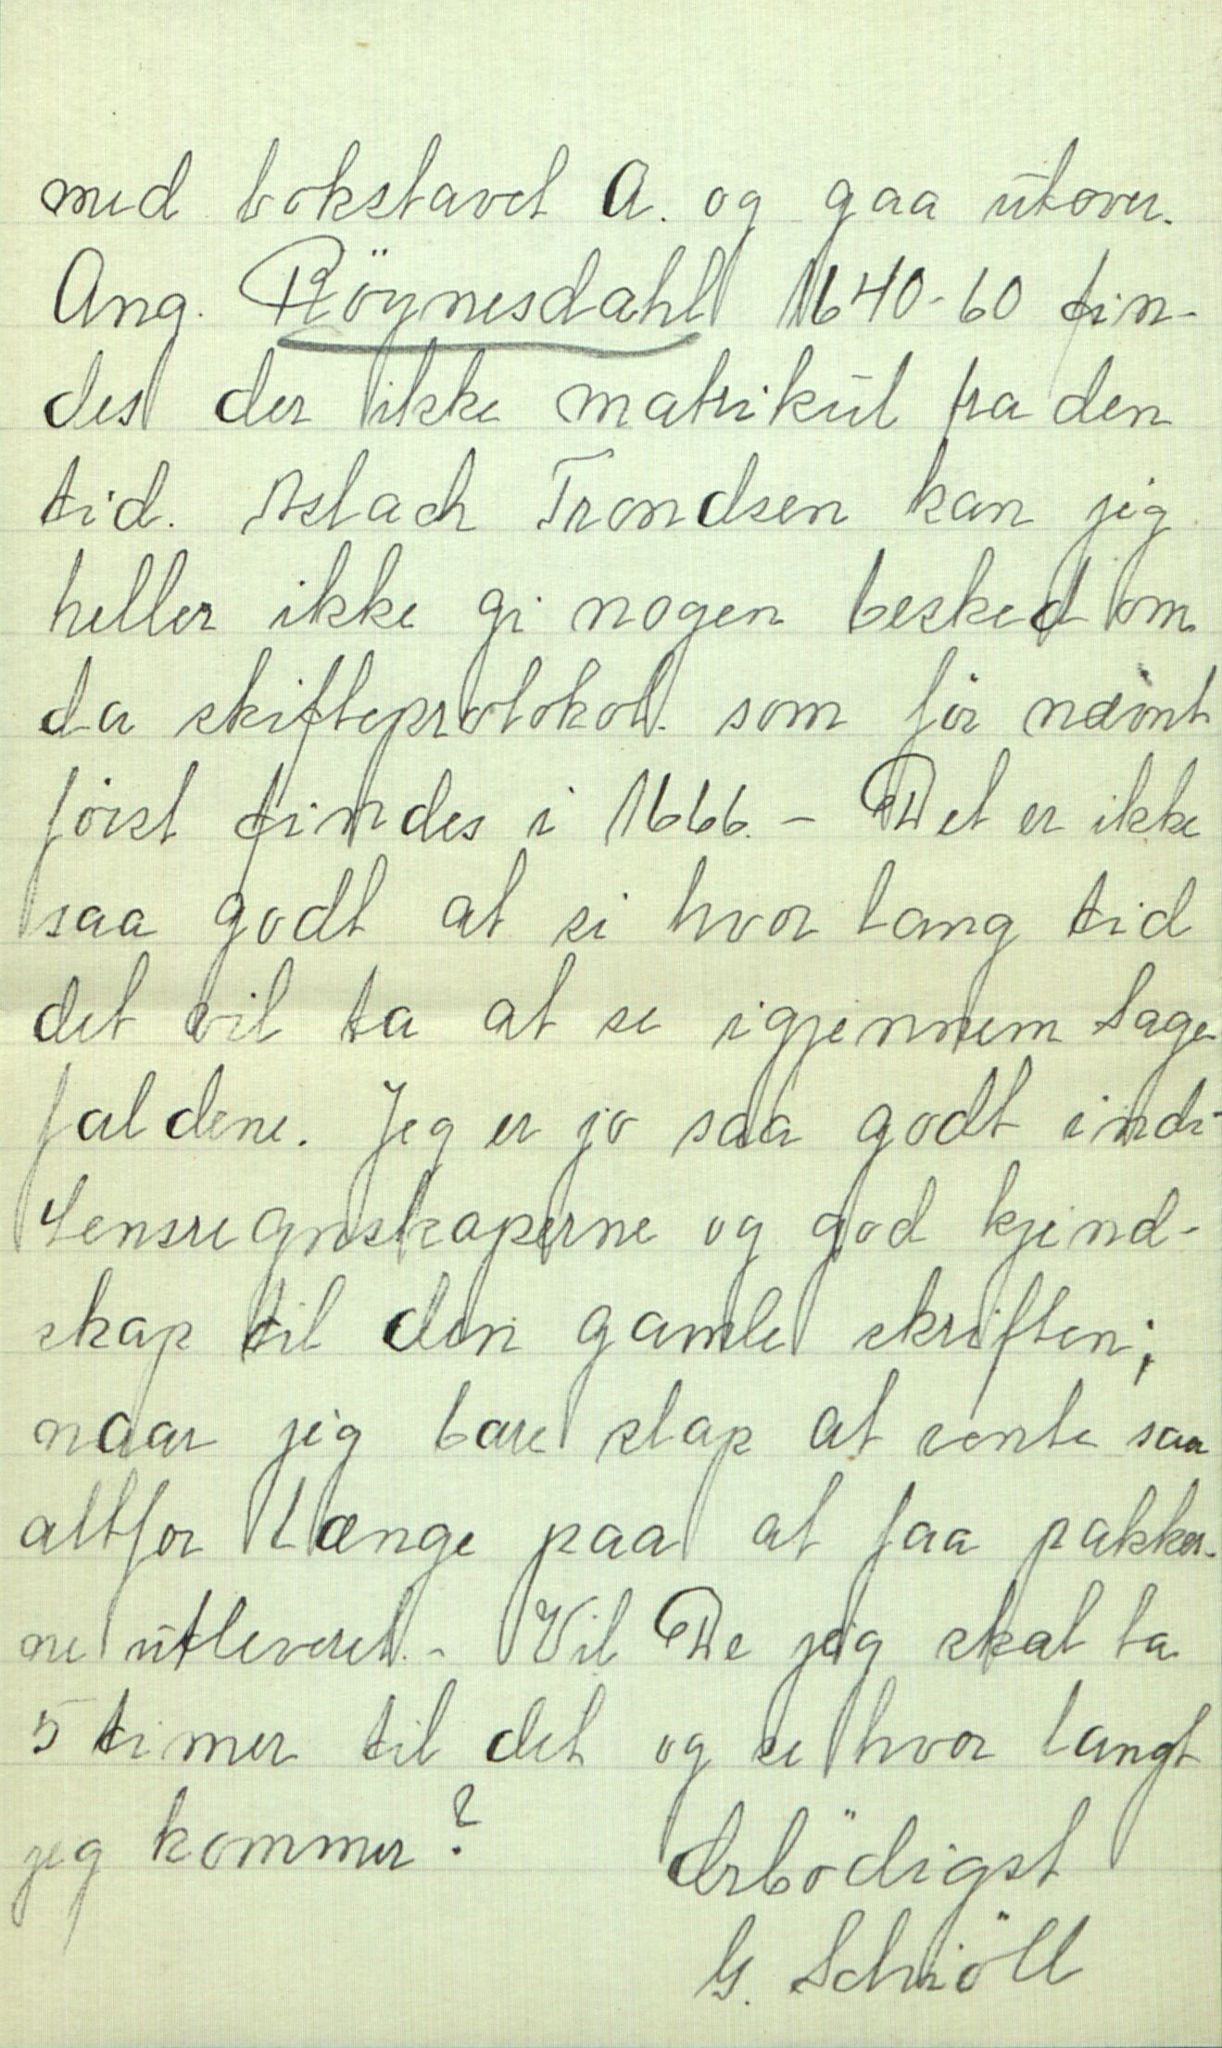 med bokstavet A. og gaa utover.
Ang. Röynesdahl 1640-60 fin-
des der ikke matrikul fra den
tid. Aslach Trondsen kan jeg
heller ikke gi nogen besked om
da skifteprotokol. som för nævnt
först findes i 1666. - Det er ikke
saa godt at si hvor lang tid
det vil ta at se igjennem Sage
faldene. Jeg er jo saa godt ind i
Lensregnskaperne og god kjend-
skap til den gamle skriften;
naar jeg bare slap at vente saa
altfor længe paa at faa pakker-
ne utleveret. - Vil De jeg skal ta
5 timer til det og se hvor langt
jeg kommer?
Ærbödigst
G. Schiöll